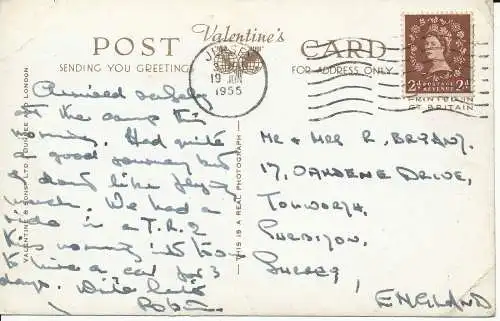 POST Valentine's CARD
SENDING YOU GREETINGS
FOR ADDRESS ONLY
JERSEY
19 JUN
1955
2D POSTAGE REVENUE 2D
PRINTED IN
GT BRITAIN
Arrived safely
at the camp this
morning. Had quite
a good journey but
don't like flying
much. We had a
ride in a T.R.2
this morning
hire a car for 3
days. Write later
Robin.
VALENTINE & SONS, LTD., DUNDEE AND LONDON
THIS IS A REAL PHOTOGRAPH
MR & MRS R. BRYANT,
17, OAKDENE DRIVE,
TOLWORTH,
SURBITON,
SURREY,
ENGLAND